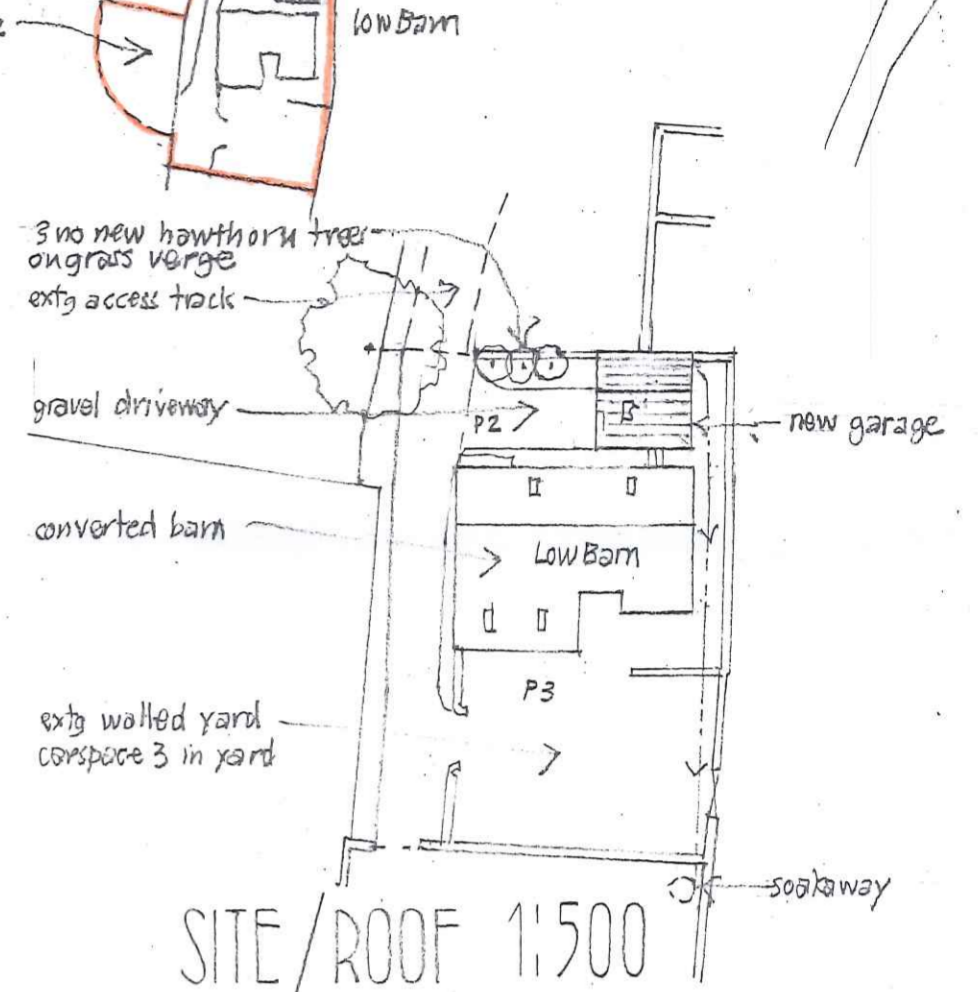 Low Barn
3 no new hawthorn trees
on grass verge
extg access track
gravel driveway
P2
new garage
converted barn
Low Barn
P3
extg walled yard
carspace 3 in yard
soakaway
SITE/ROOF 1:500